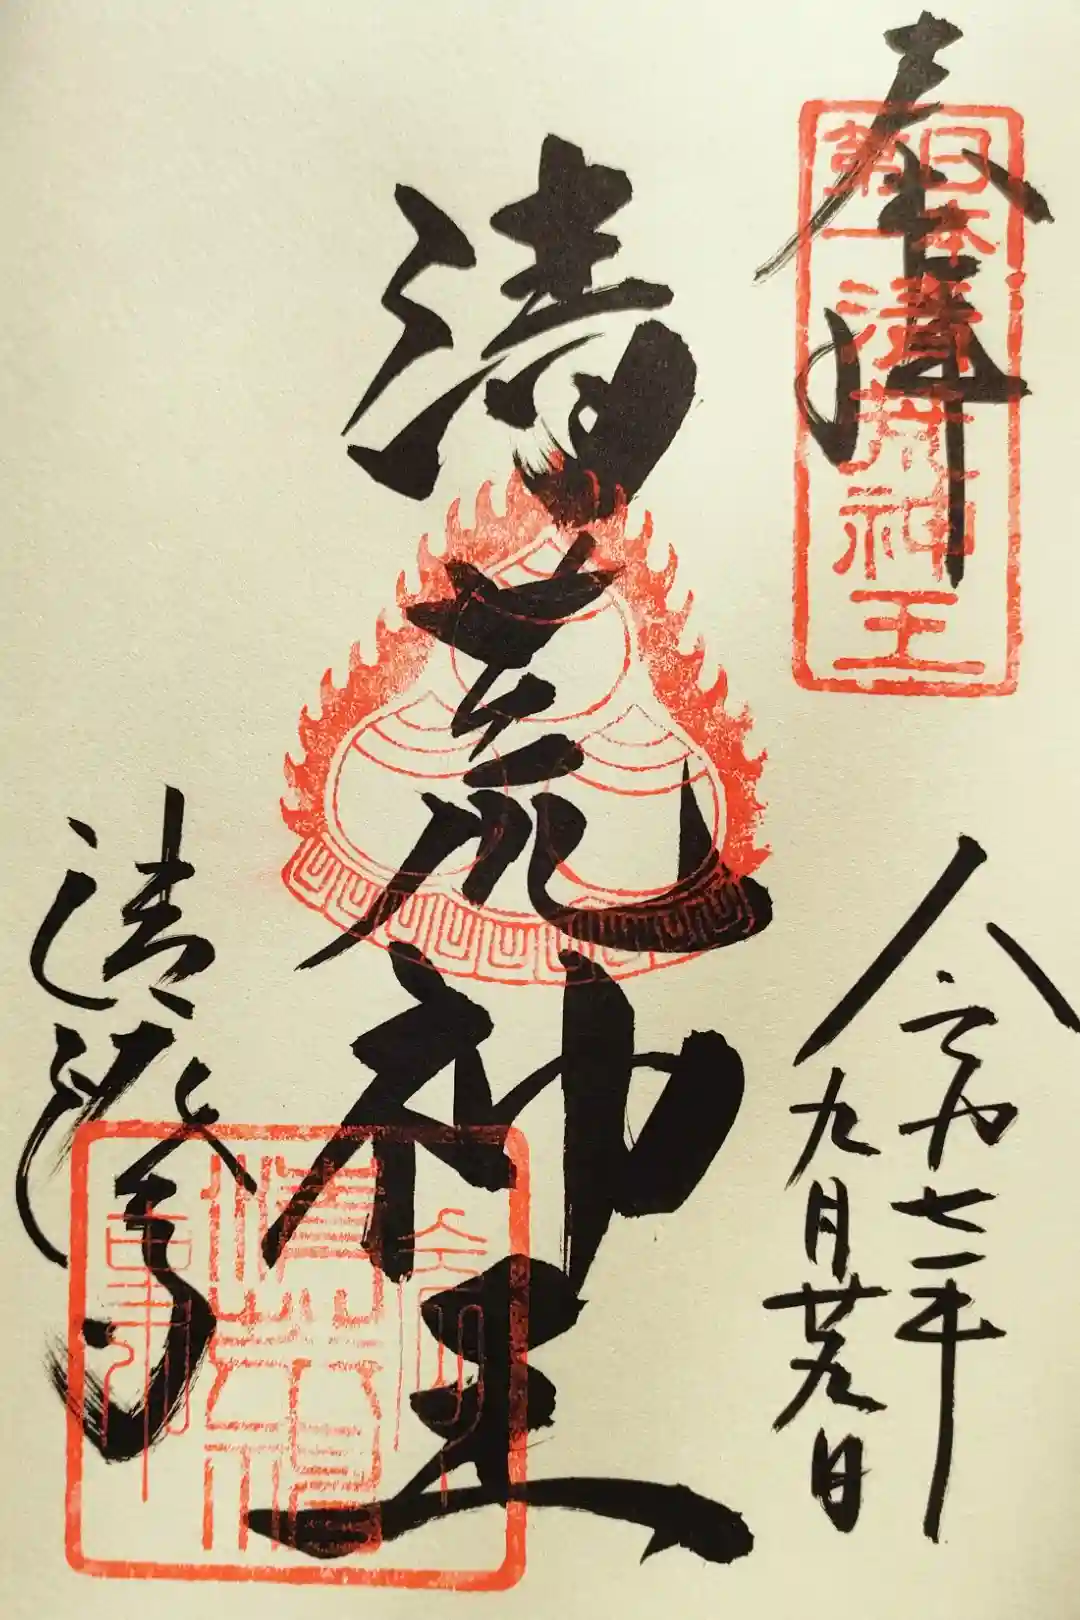 奉拝
日本
第一
清荒神王
令和七年
九月廿九日
清荒神王
清澄寺